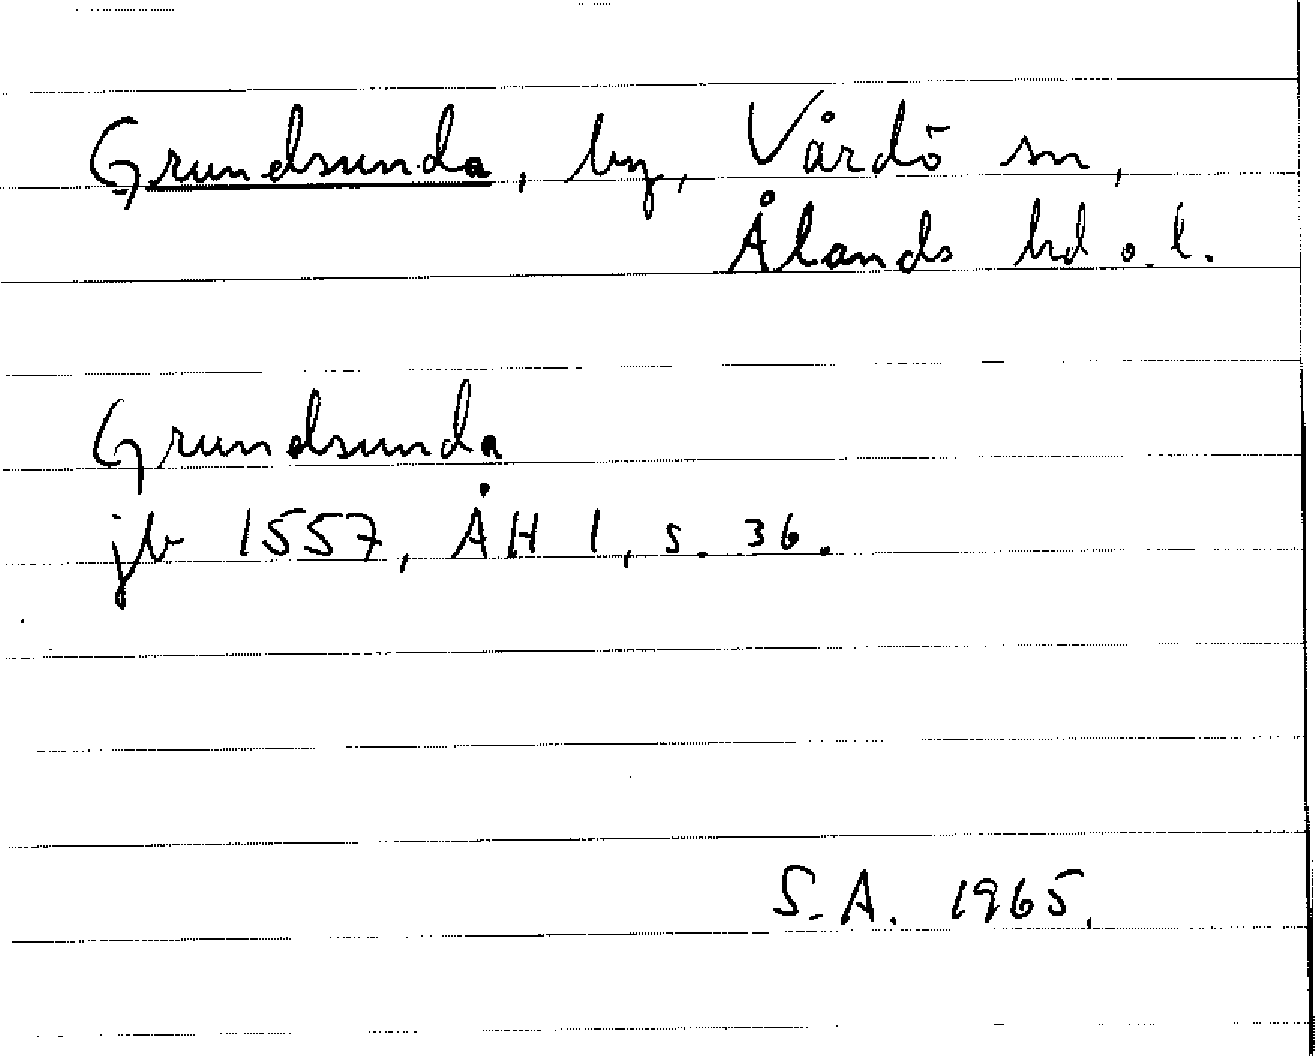 Grundsunda, by, Vårdö sn,
Ålands hd o. l.
Grundsunda
jb 1557, ÅH 1, s. 36.
S.A. 1965.